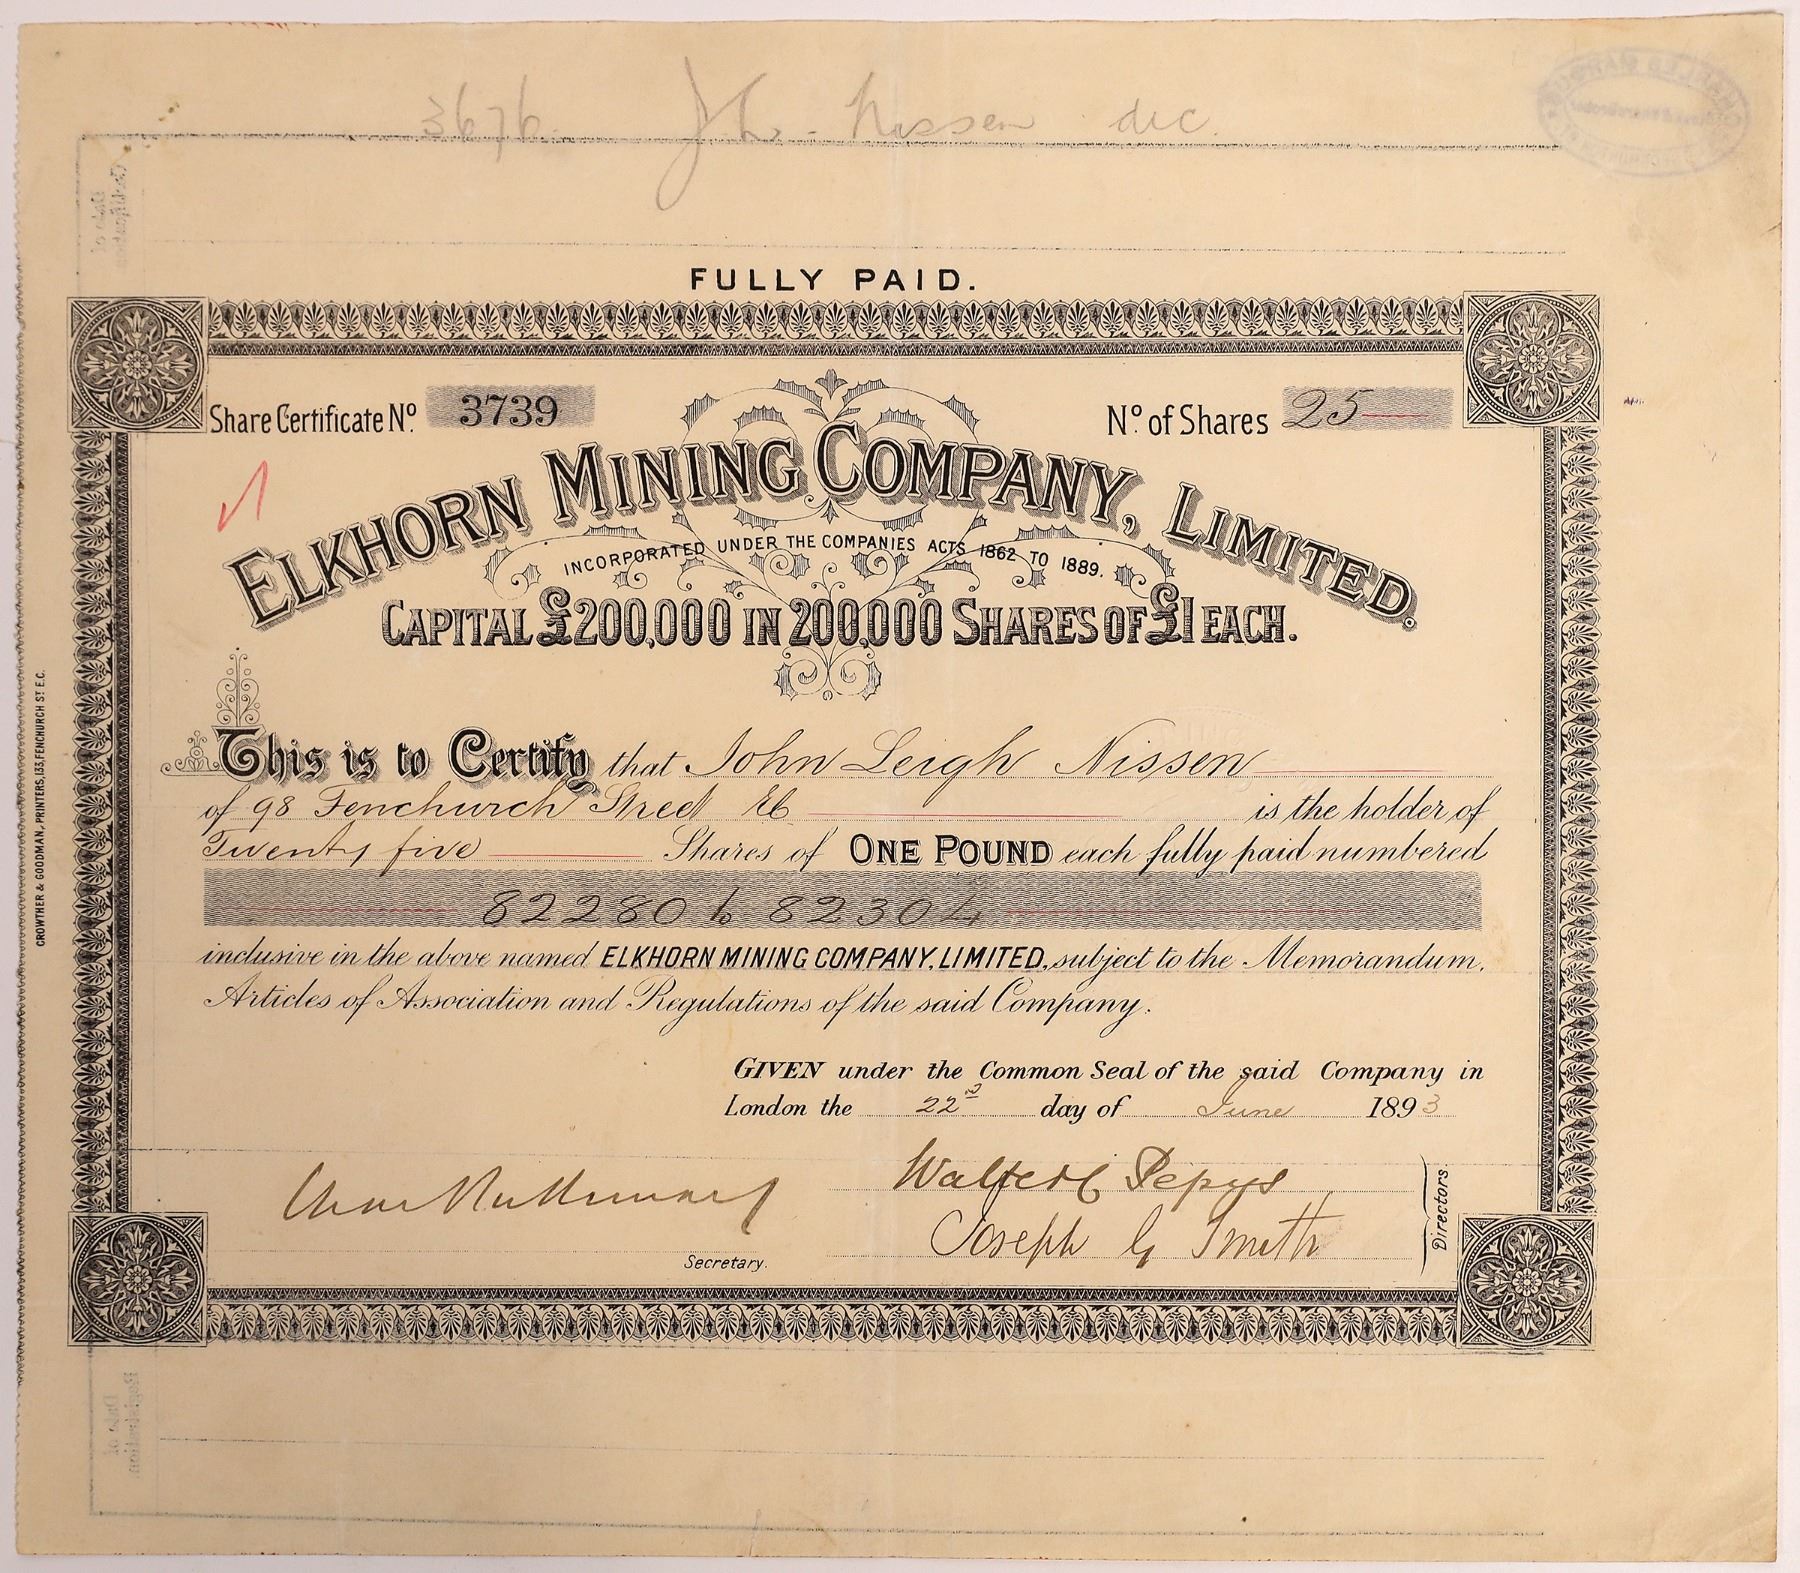 3676 J L. Nissen dec.
FULLY PAID.
Share Certificate No. 3739 No. of Shares 25
ELKHORN MINING COMPANY, LIMITED.
INCORPORATED UNDER THE COMPANIES ACTS 1862 TO 1889.
CAPITAL £200,000 IN 200,000 SHARES OF £1 EACH.
This is to Certify that John Leigh Nissen
of 98 Fenchurch Street EC is the holder of
Twenty five Shares of ONE POUND each fully paid numbered
82280 to 82304
inclusive in the above named ELKHORN MINING COMPANY, LIMITED, subject to the Memorandum,
Articles of Association and Regulations of the said Company.
GIVEN under the Common Seal of the said Company in
London the 22nd day of June 1893
Walter C Pepys
Joseph G Smith
Directors
Secretary.
CROWTHER & GOODMAN, PRINTERS, 133, FENCHURCH ST. E.C.
Date of
Registration